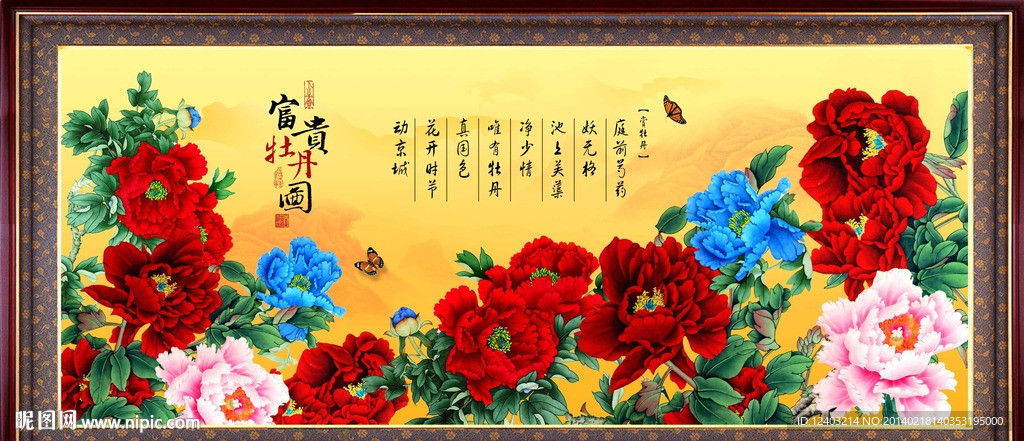 【赏牡丹】
庭前芍药
妖无格
池上芙蕖
净少情
唯有牡丹
真国色
花开时节
动京城
富貴牡丹圖
昵图网 www.nipic.com
ID:12403214 NO:20140218140353195000